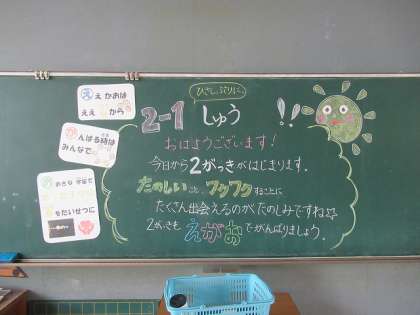 ひさしぶりに、
2-1 しゅう !!
おはようございます!
今日から2がっきがはじまります。
たのしいこと、ワクワクすることに
たくさん出会えるのがたのしみですね☆
2がっきも えがおでがんばりましょう。
え え がおは
ええ から
が んばる時は
みんなで
をたいせつに